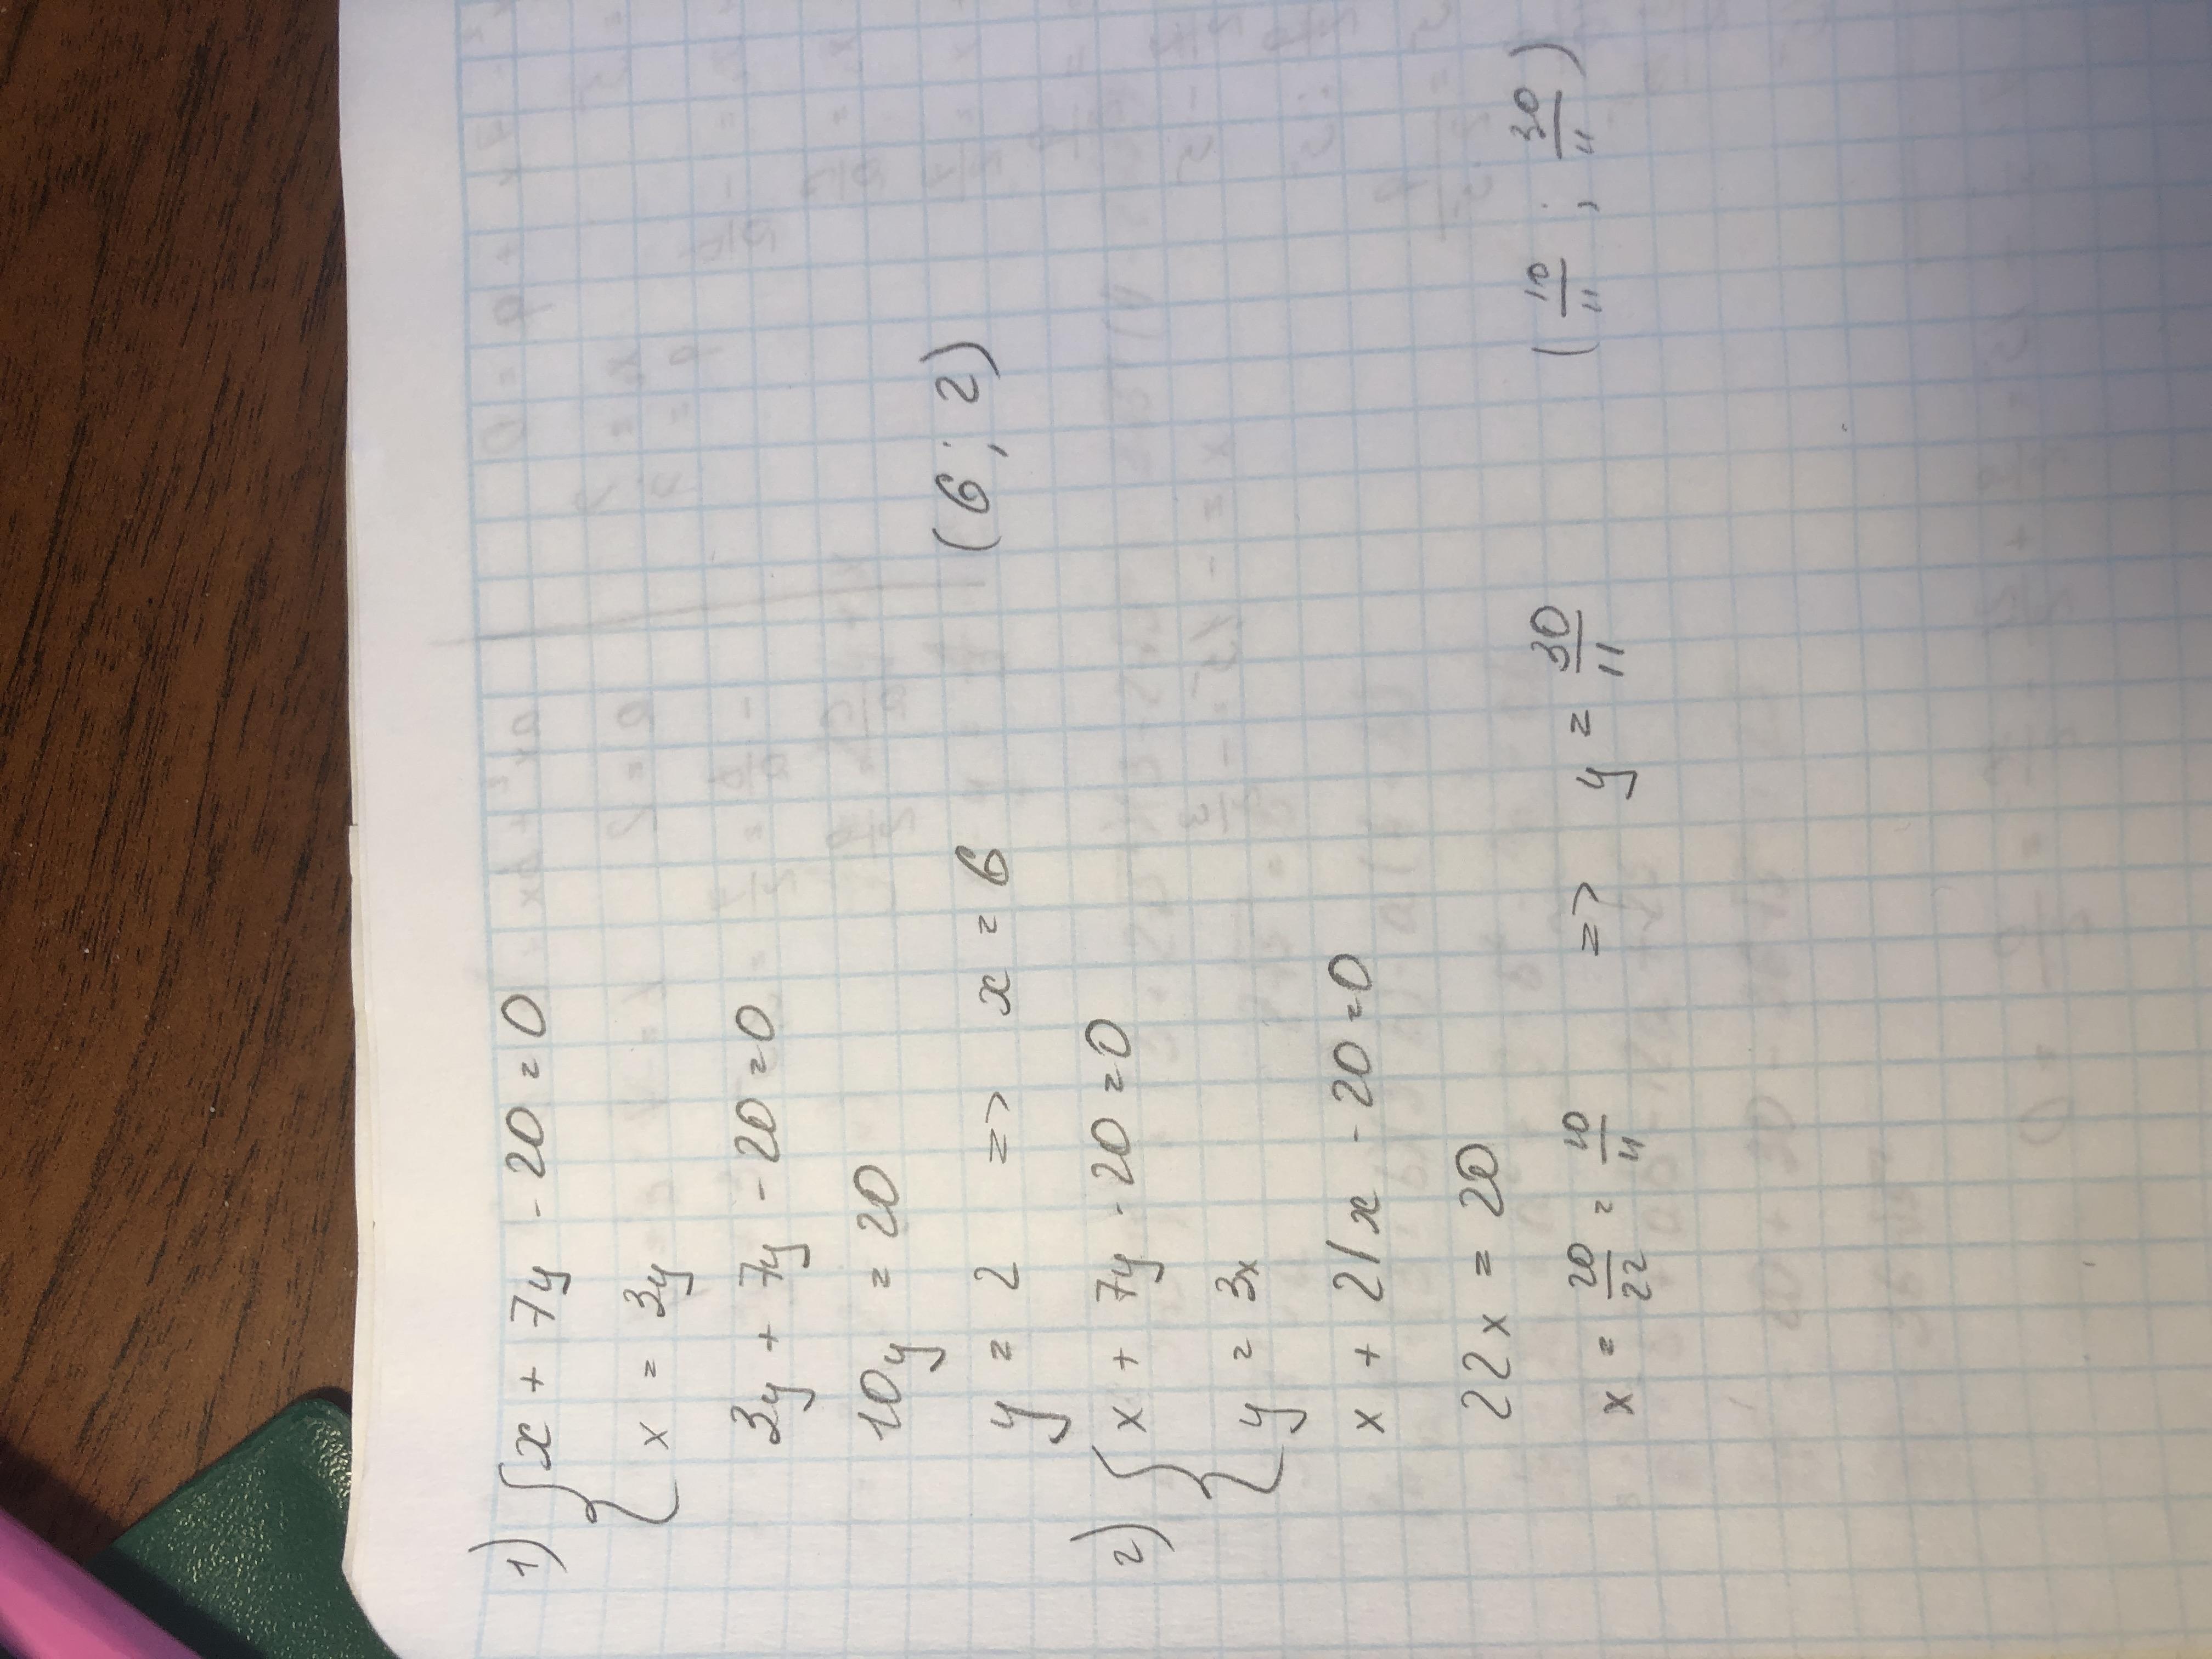 1) { x + 7y - 20 = 0
x = 3y
3y + 7y - 20 = 0
10y = 20
y = 2 => x = 6 (6; 2)
2) { x + 7y - 20 = 0
y = 3x
x + 21x - 20 = 0
22x = 20
x = 20/22 = 10/11 => y = 30/11 (10/11; 30/11)